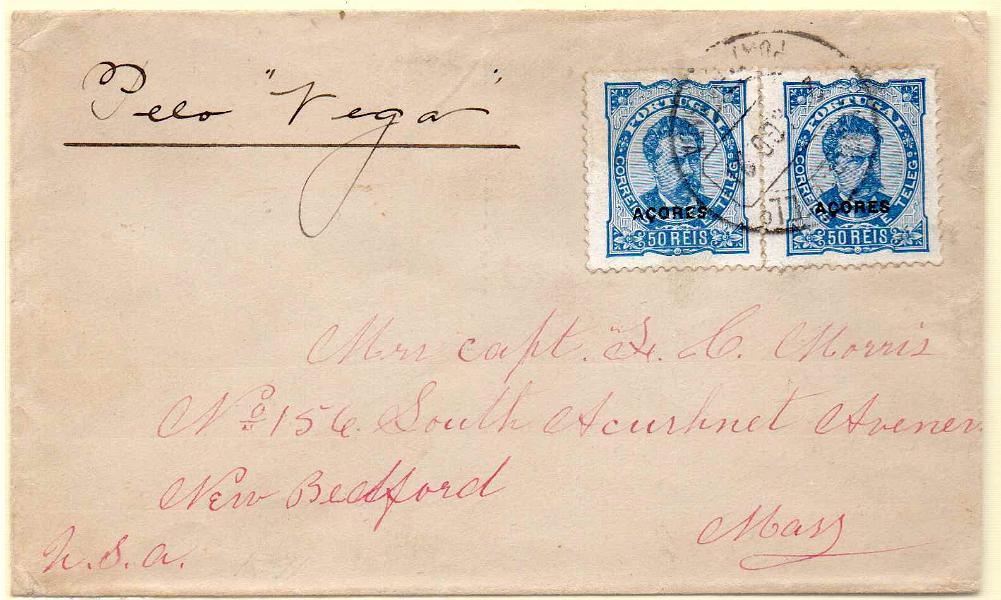 Pelo "Vega"
PORTUGAL
CORREIO TELEG
AÇORES
50 REIS
PORTUGAL
CORREIO TELEG
AÇORES
50 REIS
Mrs capt. H. C. Morris
No 156 South Acushnet
New Bedford
Mass
U.S.A.